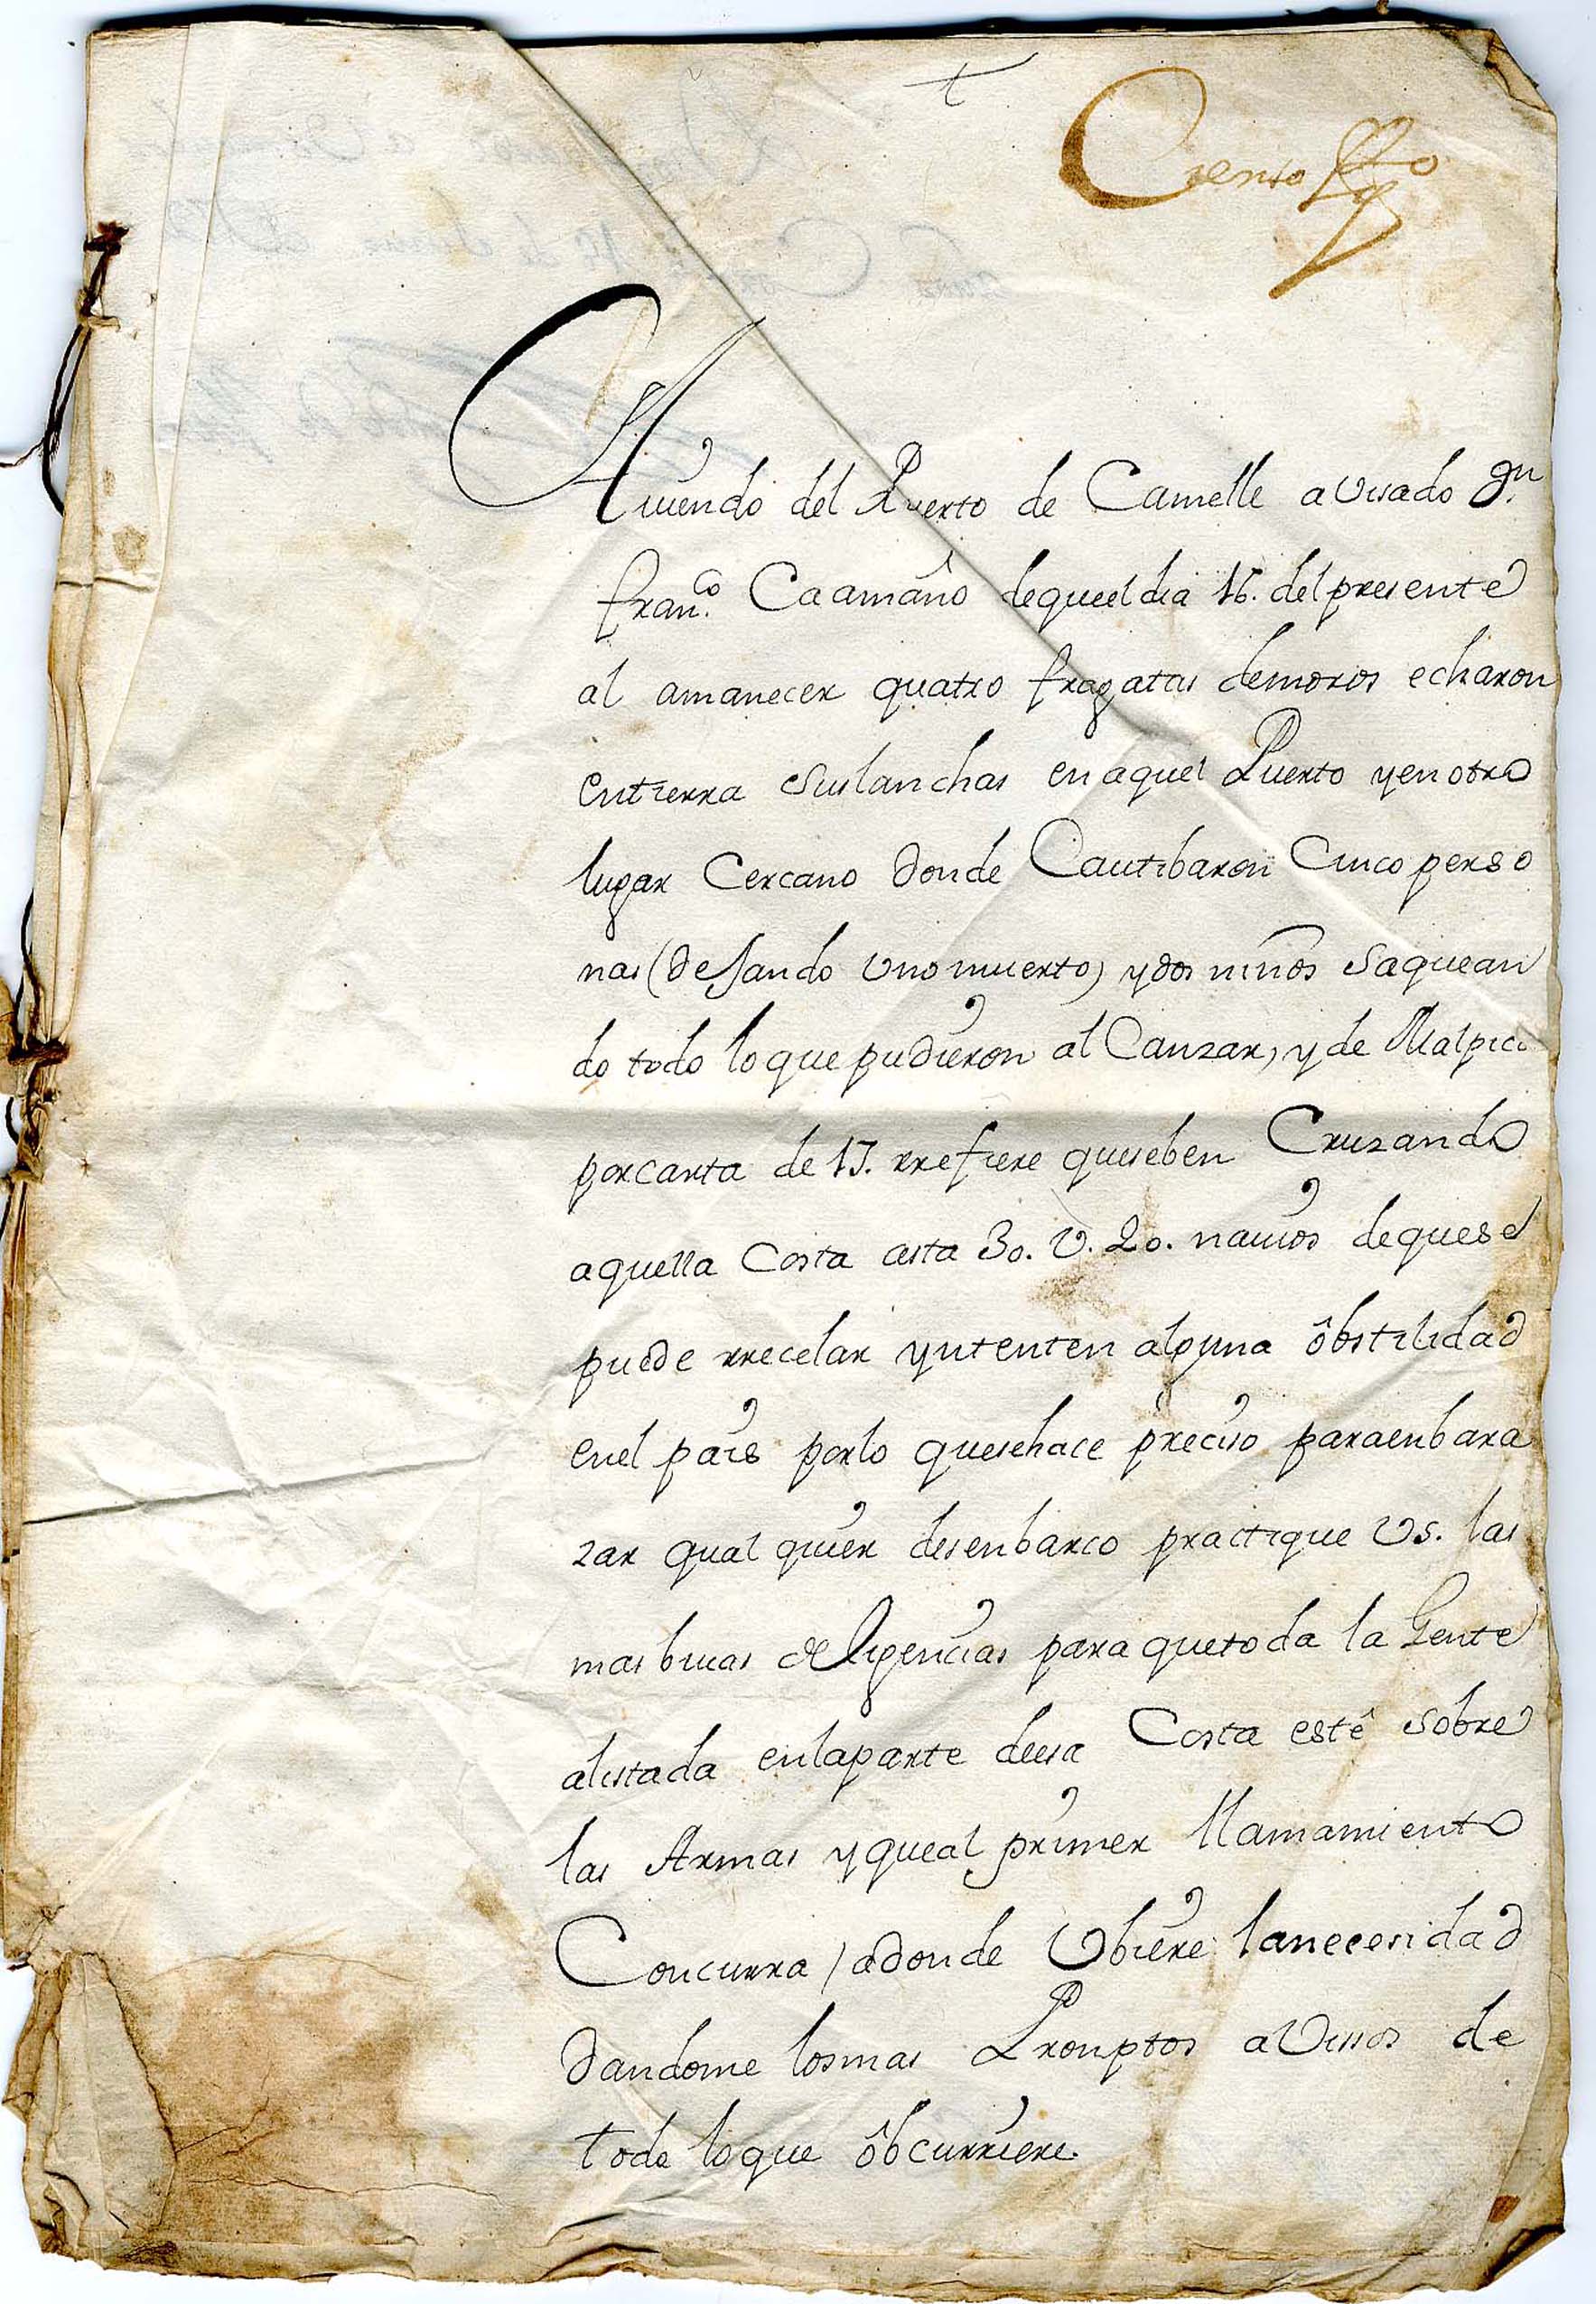 t
Ciento
Auiendo del Puerto de Camelle aVisado Dn.
fran.co Caamaño dequeeldia 16. delpresente
al amanecer quatro fragatas demoros echaron
entierra suslanchas enaquel Puerto yenotro
lugar Cercano donde Cautibaron Cinco perso
nas (deJando Vnomuerto) ydos niños saquean
do todo loque pudieron alCanzar, y de Malpica
porcarta de 17. rrefiere queseben Cruzando
aquella Costa asta 30. V. 20. nauios dequese
puede rrecelar yntenten alguna ôbstilidad
enel pais porlo quesehace preciso paraenbara
zar qualquier desenbarco practique Vs. las
mas biuas deligencias para quetoda la Gente
alistada enlaparte deesa Costa estê sobre
las Armas yqueal primer llamamiento
Concurra / adonde Vbiere lanecesidad
dandome losmas Promptos aVissos de
todo loque ôbcurriere.